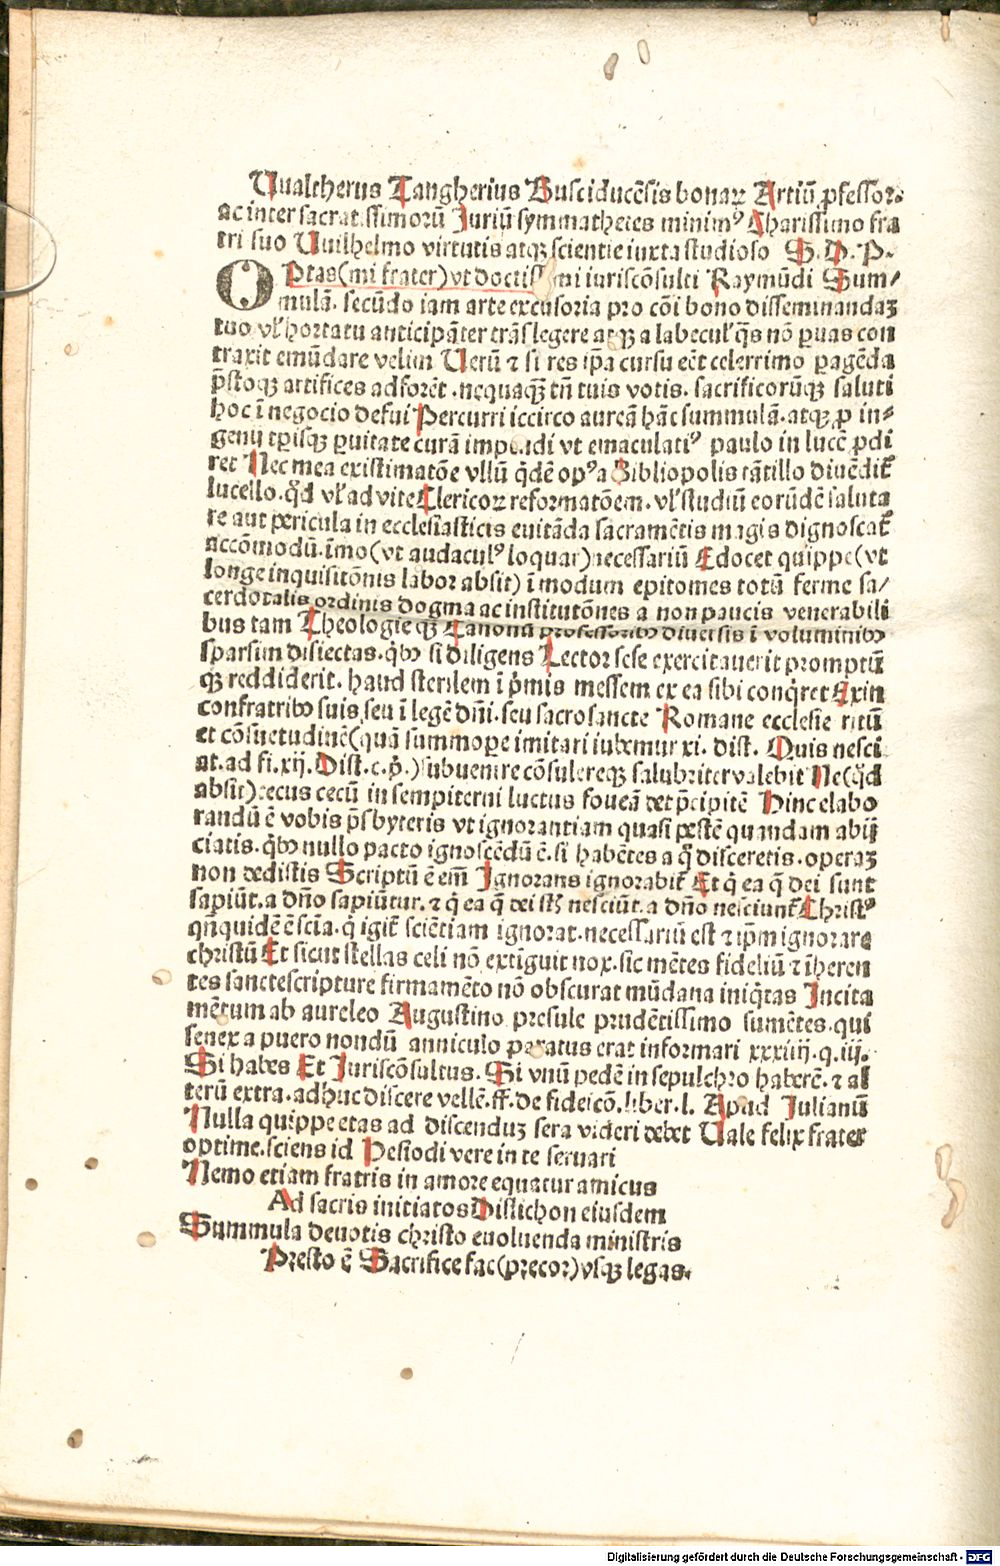 Uualtherus Tangherius Busciducēsis bonaꝝ Artiū ꝓfessor.
ac inter sacratissimorū Juriū symmathetes minimꝰ Charissimo fra
tri suo Uuilhelmo virtutis atqꝫ scientie iuxta studioso S. D. P.
OPtas(mi frater)vt doctissimi iuriscōsulti Raymūdi Sum/
mulā. secūdo iam arte excusoria pro cōi bono disseminandaꝫ
tuo vl̓ hortatu anticipāter trāslegere atqꝫ a labecul̓ q̄s nō ꝑuas con
traxit emūdare velim Uerū ⁊ si res ip̄a cursu eēt celerrimo ꝑagēda
p̄stoqꝫ artifices adforēt .nequaqꝫ̄ tn̄ tuis votis. sacrificorūqꝫ saluti
hoc ī negocio defui Percurri iccirco aureā hāc summulā. atqꝫ ꝓ in⸗
genij tꝑisqꝫ ꝑuitate curā impendi vt emaculatiꝰ paulo in lucē ꝓdi
ret Nec mea existimatōe vllū q̇dē opꝰ a Bibliopolis tātillo diuēdit̄
lucello. qd̓ vl̓ ad vite Clericoꝝ reformatōem. vl̓ studiū eorūdē saluta
re aut pericula in ecclesiasticis euitāda sacramētis magis dignoscat̄
accōmodū. īmo(vt audaculꝰ loquar)necessariū Edocet quippe(vt
longe inquisitōnis labor absit) ī modum epitomes totū ferme sa/
cerdotalis ordinis dogma ac institutōnes a non paucis venerabili
bus tam Theologie qꝫ̄ Canonū professoribꝰ diuersis ī voluminibꝰ
sparsim disiectas. q̇bꝰ si diligens Lector sese exercitauerit promptū
qꝫ reddiderit. haud sterilem ī p̓mis messem ex ea sibi conq̇ret Exin
confratribꝰ suis seu ī legē dn̄i. seu sacrosancte Romane ecclesie ritū
et cōsuetudinē(quā summoꝑe imitari iubemur xi. dist. Quis nesci
at. ad fi. xij. Dist. c. p̓.)subuenire cōsulereqꝫ salubriter valebit Ne(qd̓
absit)cecus cecū in sempiterni luctus foueā det p̄cipitē Hinc elabo
randū ē vobis p̄sbyteris vt ignorantiam quasi pestē quandam abij
ciatis. q̇bꝰ nullo pacto ignoscēdū ē. si habētes a q̇ disceretis. operaꝫ
non dedistis Scriptū ē em̄ Ignorans ignorabit̄ Et q̇ ea q̄ dei sunt
sapiūt. a dn̄o sapiūtur. ⁊ q̇ ea q̄ dei sūt nesciūt. a dn̄o nesciunt̄ Christꝰ
qn̄quidē ē scīa. q̇ igit̄ sciētiam ignorat. necessariū est ⁊ ip̄m ignorare
christū Et sicut stellas celi nō extiguit nox. sic mētes fideliū ⁊ īheren
tes sanctescripture firmamēto nō obscurat mūdana iniq̇tas Incita
mētum ab aureleo Augustino presule prudētissimo sumētes. qui
senex a puero nondū anniculo paratus erat informari xxxiiij. q. iij.
Si habes Et Juriscōsultus. Si vnū pedē in sepulchro haberē. ⁊ al
terū extra. adhuc discere vellē. ff. de fideicō. liber. l. Apud Julianū
Nulla quippe etas ad discenduꝫ sera videri debet Uale felix frater
optime. sciens id Hesiodi vere in te seruari
Nemo etiam fratris in amore equatur amicus
Ad sacris initiatos Distichon eiusdem
Summula deuotis christo euoluenda ministris
Presto ē Sacrifice fac(precor)vsqꝫ legas.
Digitalisierung gefördert durch die Deutsche Forschungsgemeinschaft - DFG